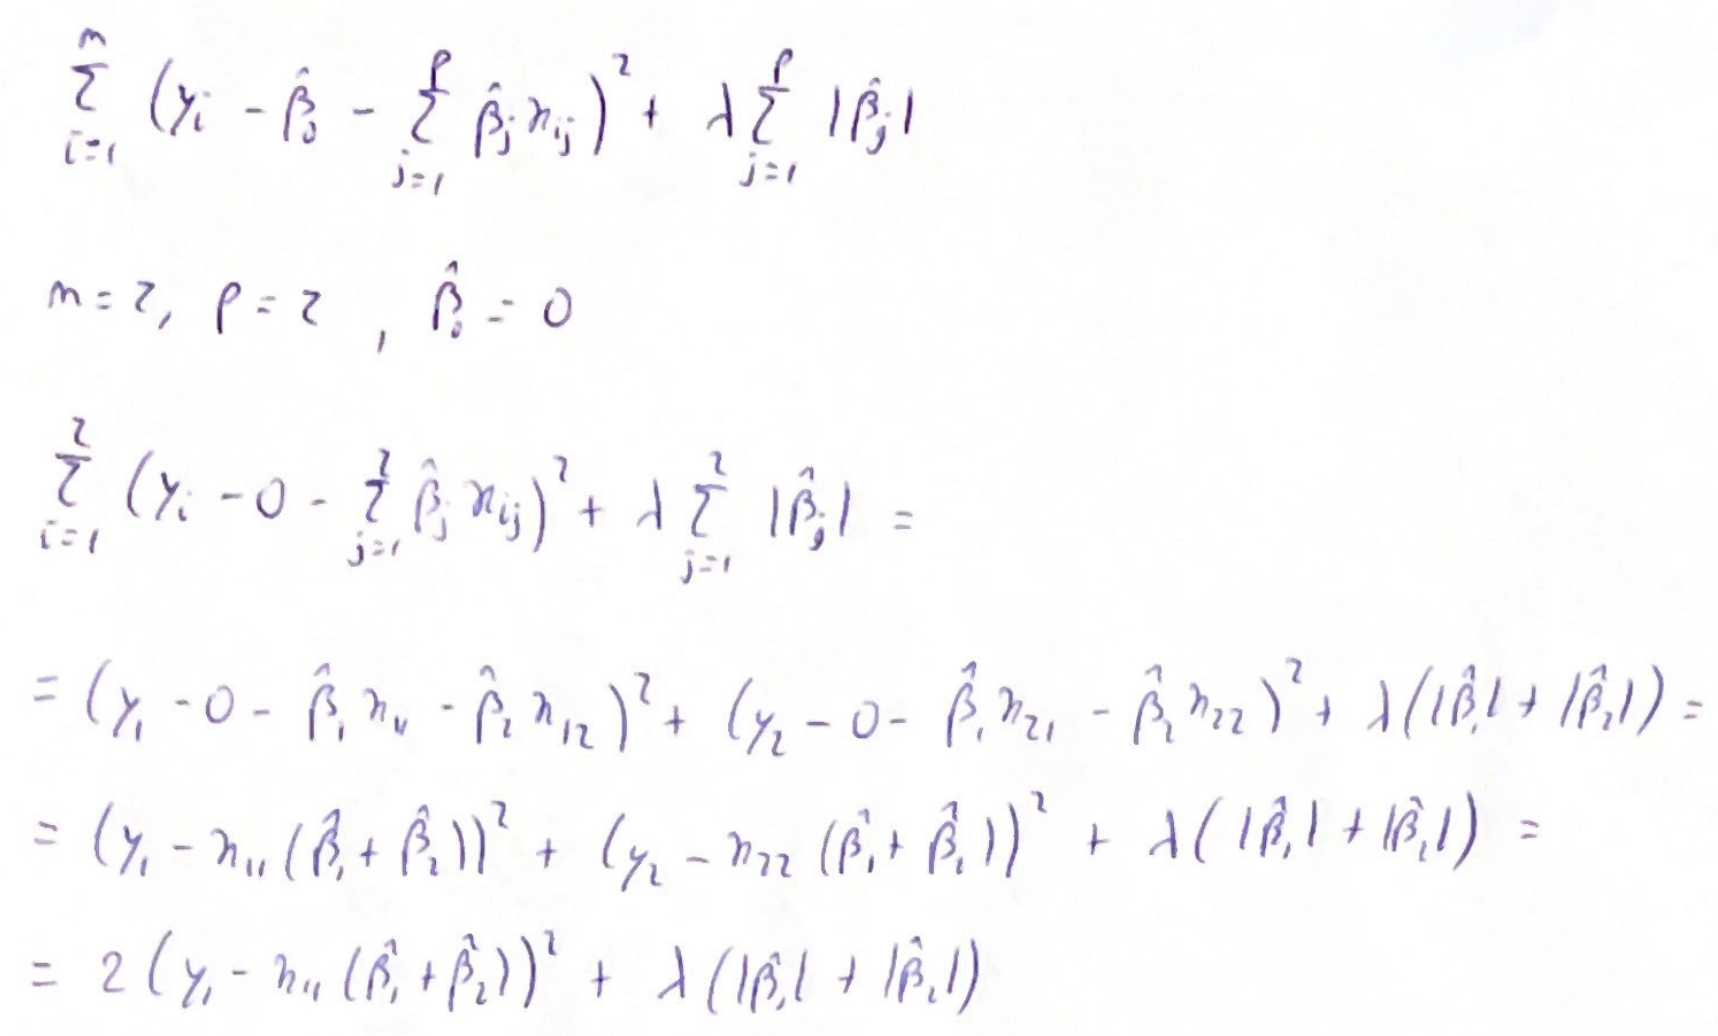 \sum_{i=1}^{n} (y_i - \hat{\beta}_0 - \sum_{j=1}^{p} \hat{\beta}_j x_{ij})^2 + \lambda \sum_{j=1}^{p} |\hat{\beta}_j|
n = 2, p = 2, \hat{\beta}_0 = 0
\sum_{i=1}^{2} (y_i - 0 - \sum_{j=1}^{2} \hat{\beta}_j x_{ij})^2 + \lambda \sum_{j=1}^{2} |\hat{\beta}_j| =
= (y_1 - 0 - \hat{\beta}_1 x_{11} - \hat{\beta}_2 x_{12})^2 + (y_2 - 0 - \hat{\beta}_1 x_{21} - \hat{\beta}_2 x_{22})^2 + \lambda (|\hat{\beta}_1| + |\hat{\beta}_2|) =
= (y_1 - x_{11} (\hat{\beta}_1 + \hat{\beta}_2))^2 + (y_2 - x_{22} (\hat{\beta}_1 + \hat{\beta}_2))^2 + \lambda (|\hat{\beta}_1| + |\hat{\beta}_2|) =
= 2 (y_1 - x_{11} (\hat{\beta}_1 + \hat{\beta}_2))^2 + \lambda (|\hat{\beta}_1| + |\hat{\beta}_2|)